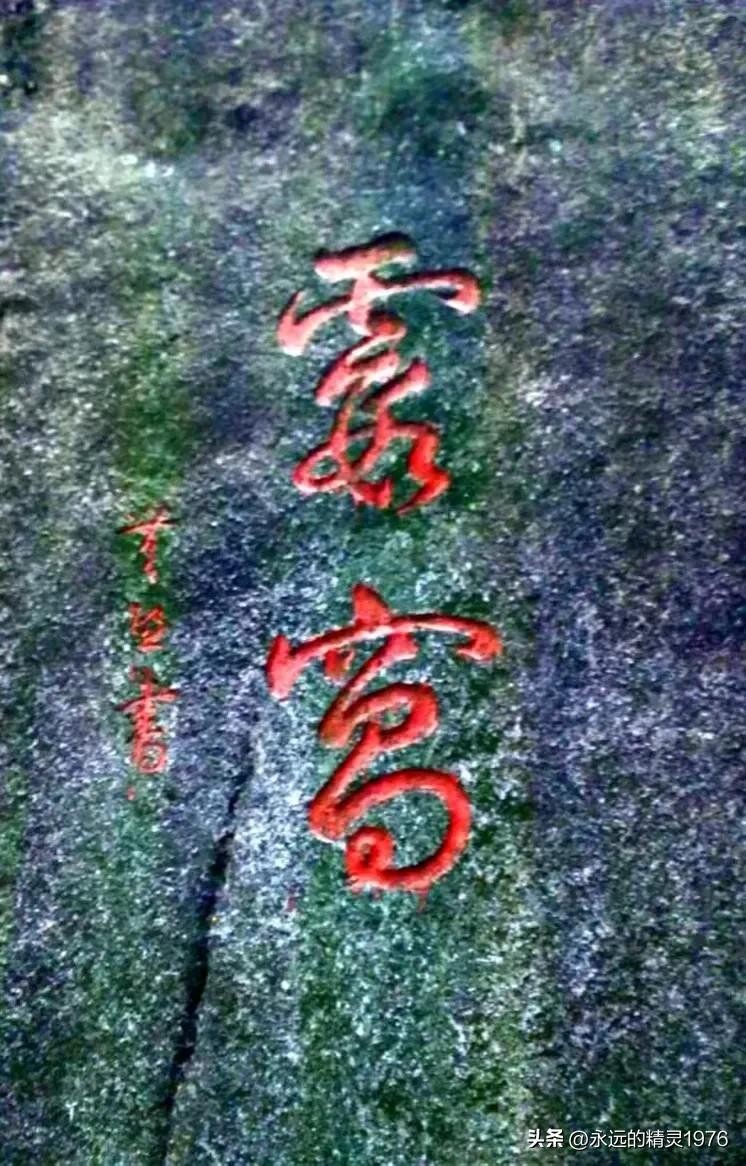 霞窩
書
头条 @永远的精灵1976